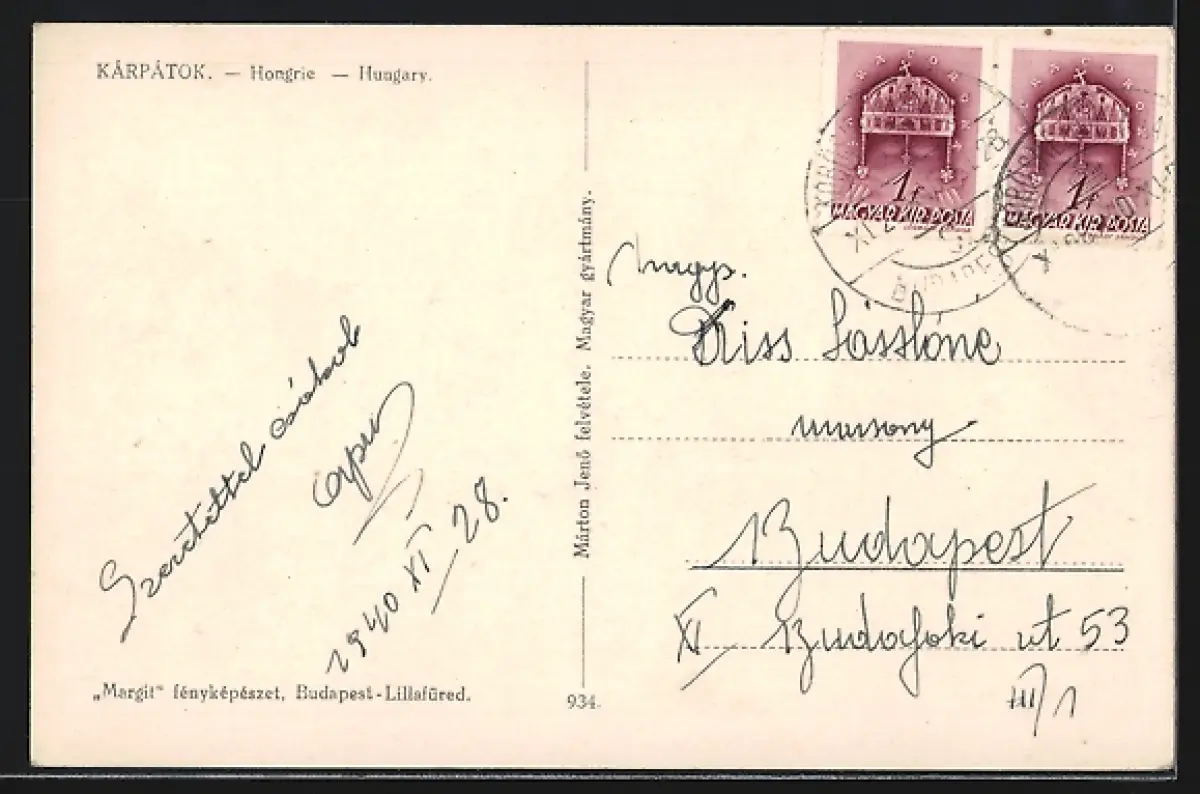 KÁRPÁTOK. — Hongrie — Hungary.
Szeretettel csókol
Apu
1940 XI 28.
„Margit“ fényképészet, Budapest-Lillafüred.
Márton Jenő felvétele. Magyar gyártmány.
934.
1f
MAGYAR KIR. POSTA
1f
MAGYAR KIR. POSTA
BUDAPEST
Nagys.
Kiss Lászlóné
Budapest
XI Budafoki út 53
III/1